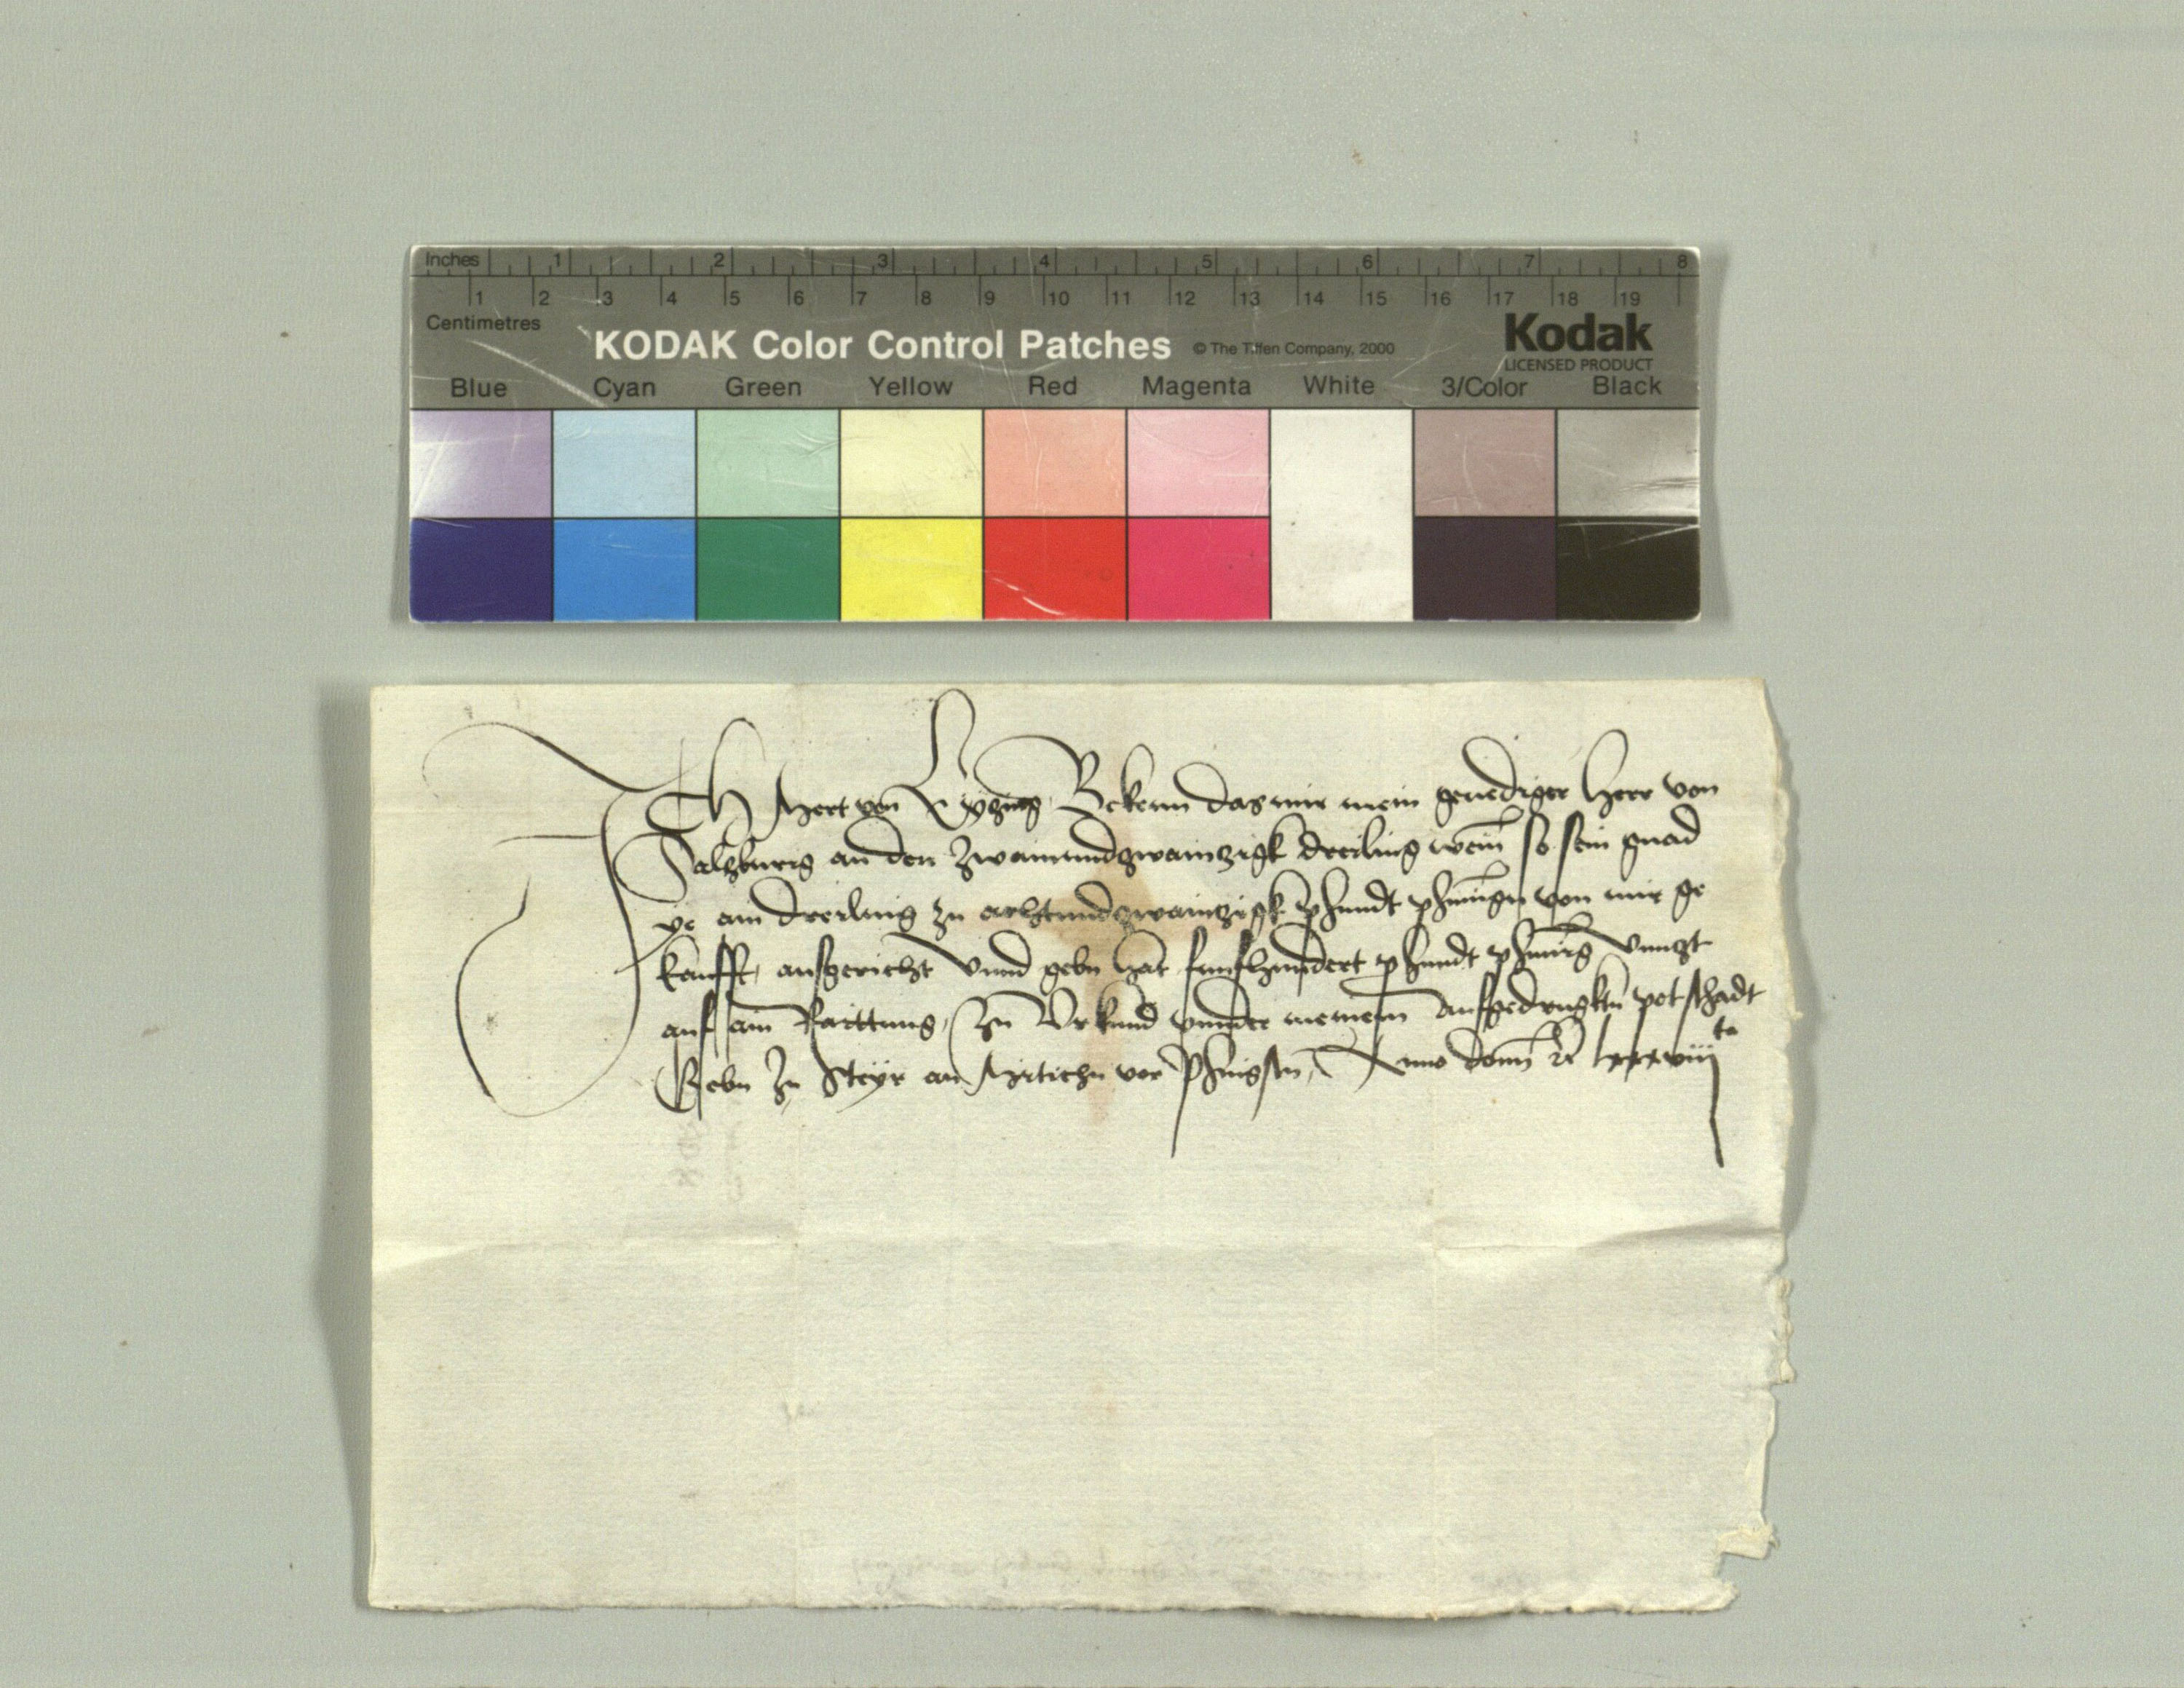 Inches 1 2 3 4 5 6 7 8
1 2 3 4 5 6 7 8 9 10 11 12 13 14 15 16 17 18 19
Centimetres
KODAK Color Control Patches © The Tiffen Company, 2000 Kodak
LICENSED PRODUCT
Blue Cyan Green Yellow Red Magenta White 3/Color Black
Ich von Bekenn das mir mein genediger herr von
Salzburg an den Zwaiundzwainzigk dreiling wein so sein gnad
ye ain dreiling zu achtundzwainzigk phundt phening von mir ge
kaufft, ausgericht vnnd gebn hat funfhundert phundt phening vnnczt
auf ain Raittung, Zu Vrkund vnnder meinem aufgedrugktn petschadt
Gebn zu Steyr an Mitichn vor Phingstn, Anno domi lxxxviij to